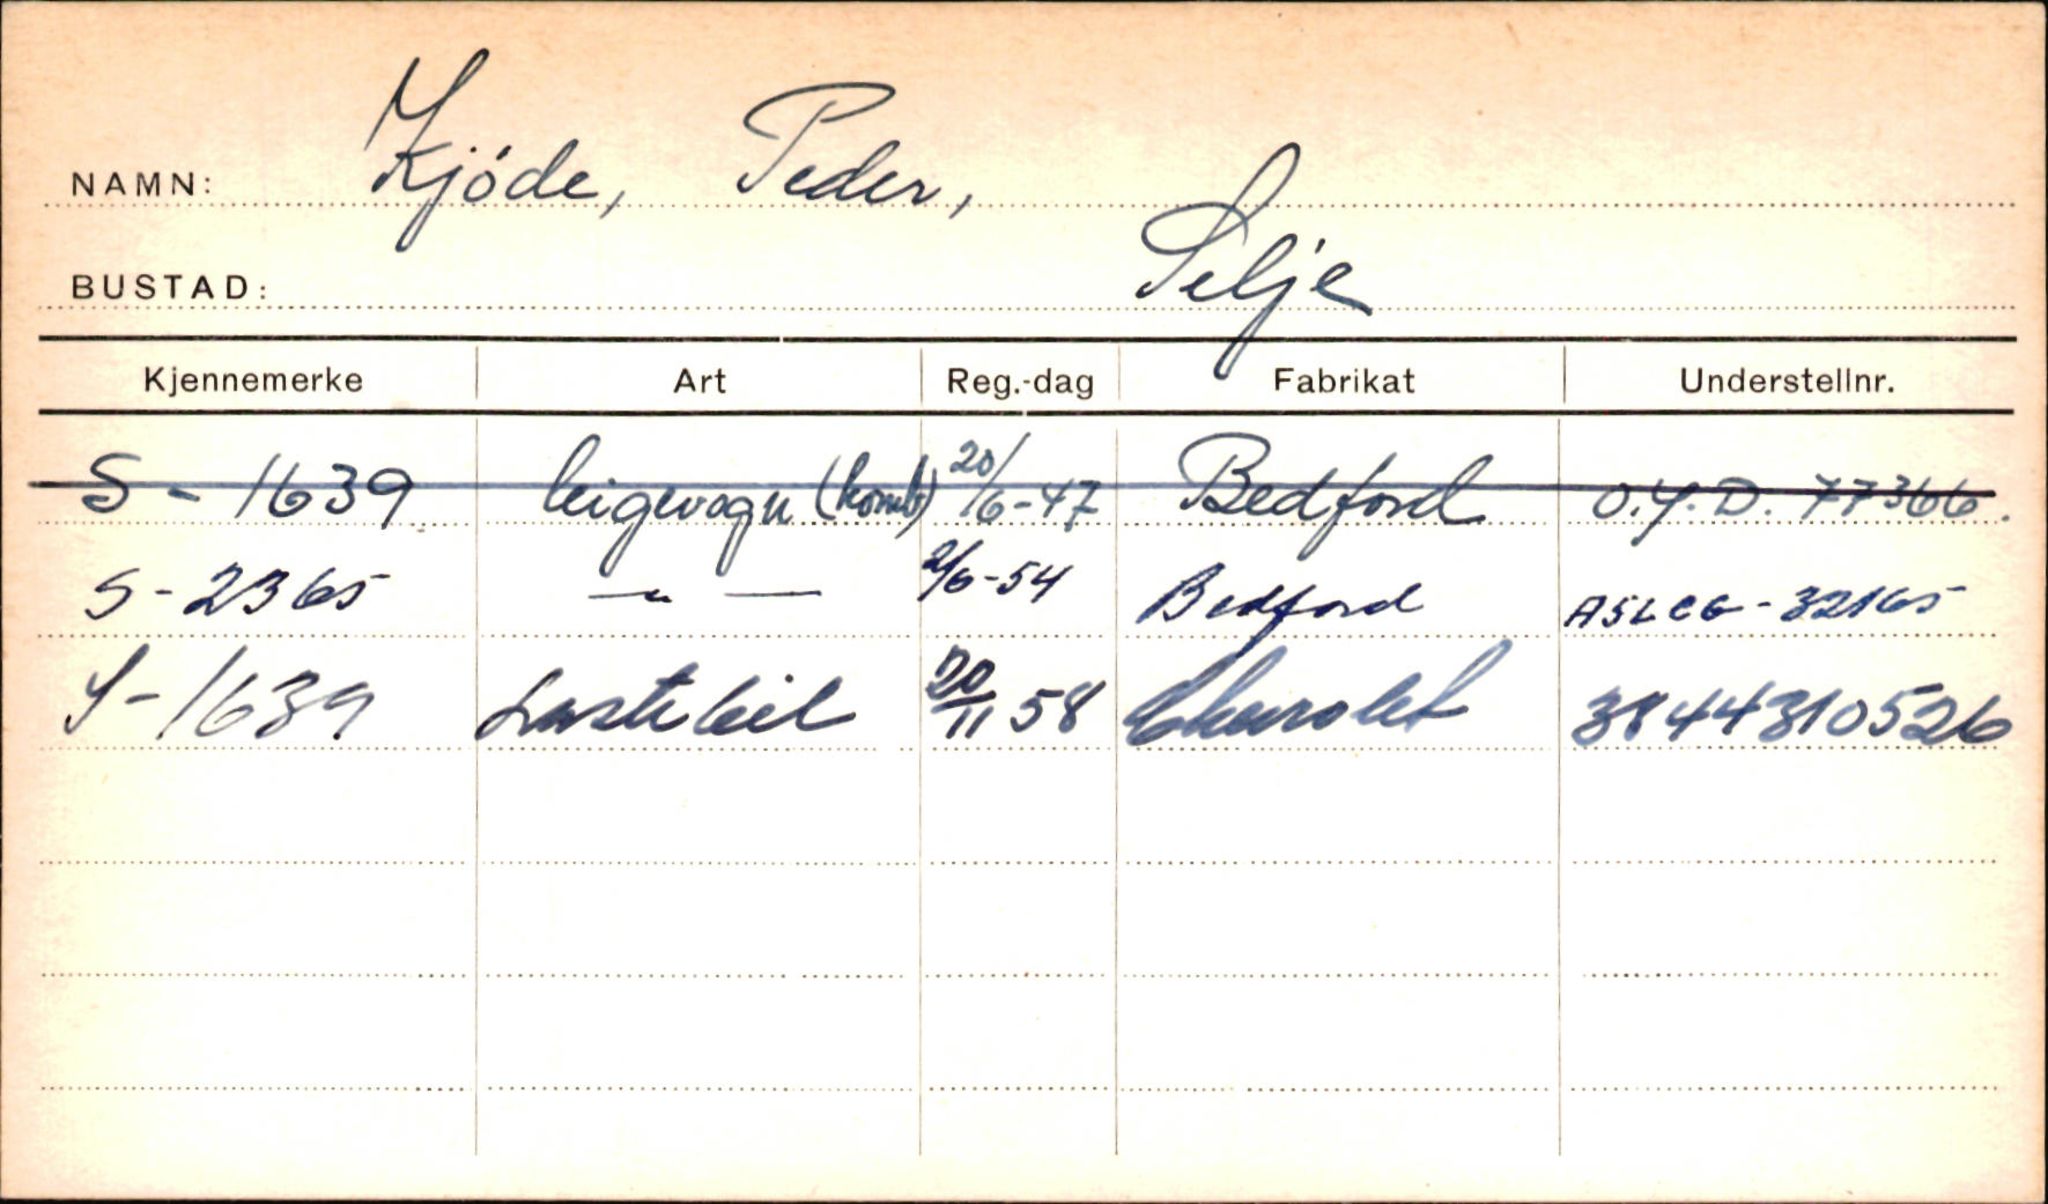 NAMN: Kjöde, Peder,
BUSTAD: Selje
Kjennemerke Art Reg.-dag Fabrikat Understellnr.
S - 1639 leigevogn (komb) 20/6-47 Bedford O.Y.D. 77366.
S - 2365 — " — 2/6-54 Bedford A5LCG - 32165
S - 1639 Lastebil 20/11 58 Chevrolet 3844310526